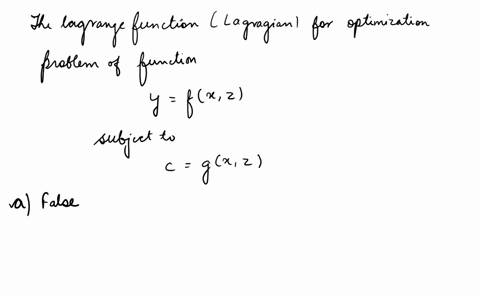 The lagrange function (Lagragian) for optimization
problem of function
y = f(x,z)
subject to
c = g(x,z)
a) False